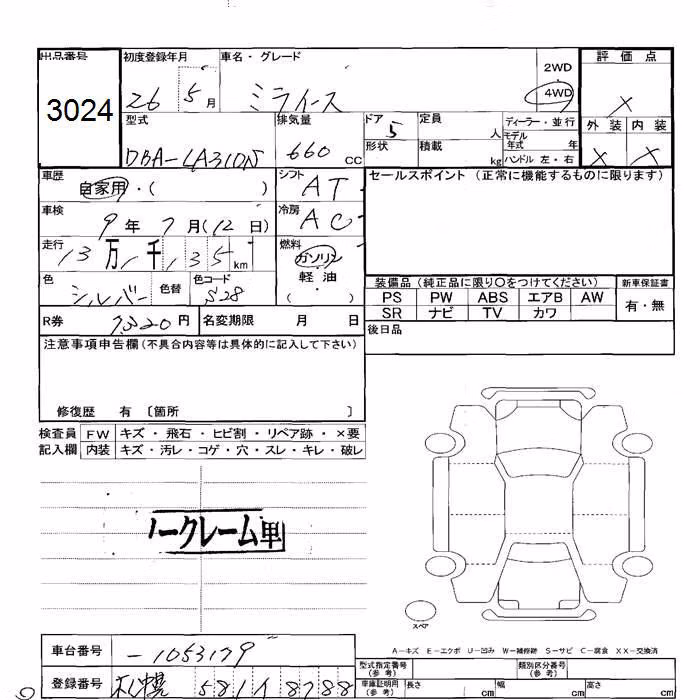 出品番号 初度登録年月 車名・グレード 2WD 評価点
3024 26 5月 ミライース 4WD X
型式 排気量 ドア 定員 ディーラー・並行 外装 内装
DBA-LA310N 660 CC 5 人 モデル年式 年 X X
形状 積載 kg ハンドル 左・右
車歴 シフト セールスポイント (正常に機能するものに限ります)
自家用・( ) AT
車検 冷房
9年7月(12日) AC
走行 燃料
13万1千135km ガソリン
色 色替 色コード 軽油
シルバー S28 ( )
装備品 (純正品に限り○をつけてください) 新車保証書
PS PW ABS エアB AW 有・無
SR ナビ TV カワ
R券 円 名変期限 月 日 後日品
注意事項申告欄(不具合内容等は具体的に記入して下さい)
修復歴 有 〔箇所 〕
検査員 FW キズ・飛石・ヒビ割・リペア跡・×要
記入欄 内装 キズ・汚レ・コゲ・穴・スレ・キレ・破レ
ノークレーム車
スペア
A-キズ E-エクボ U-凹み W-補修跡 S-サビ C-腐食 XX-交換済
車台番号 -1053179
型式指定番号(参考) 類別区分番号(参考)
登録番号 札幌 581 8788
車庫証明用(参考) 長さ cm 幅 cm 高さ cm